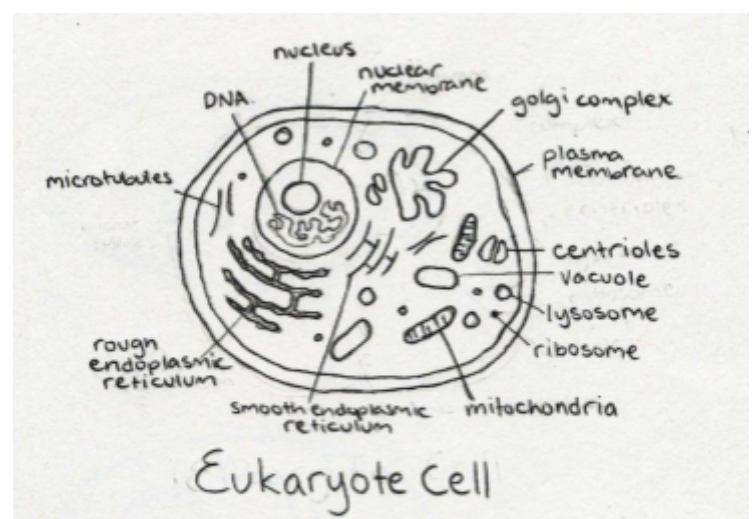 nucleus
nuclear
membrane
DNA.
golgi complex
plasma
membrane
microtubules
centrioles
vacuole
lysosome
ribosome
rough
endoplasmic
reticulum
smooth endoplasmic
reticulum
mitochondria
Eukaryote Cell